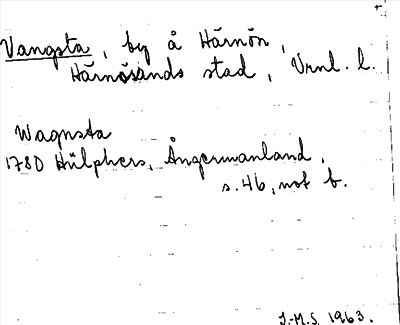 Vangsta, by å Härnön,
Härnösands stad, Vrnl. l.
Wagnsta
1780 Hülphers, Ångermanland,
s. 46, not b.
J.-M.S. 1963.